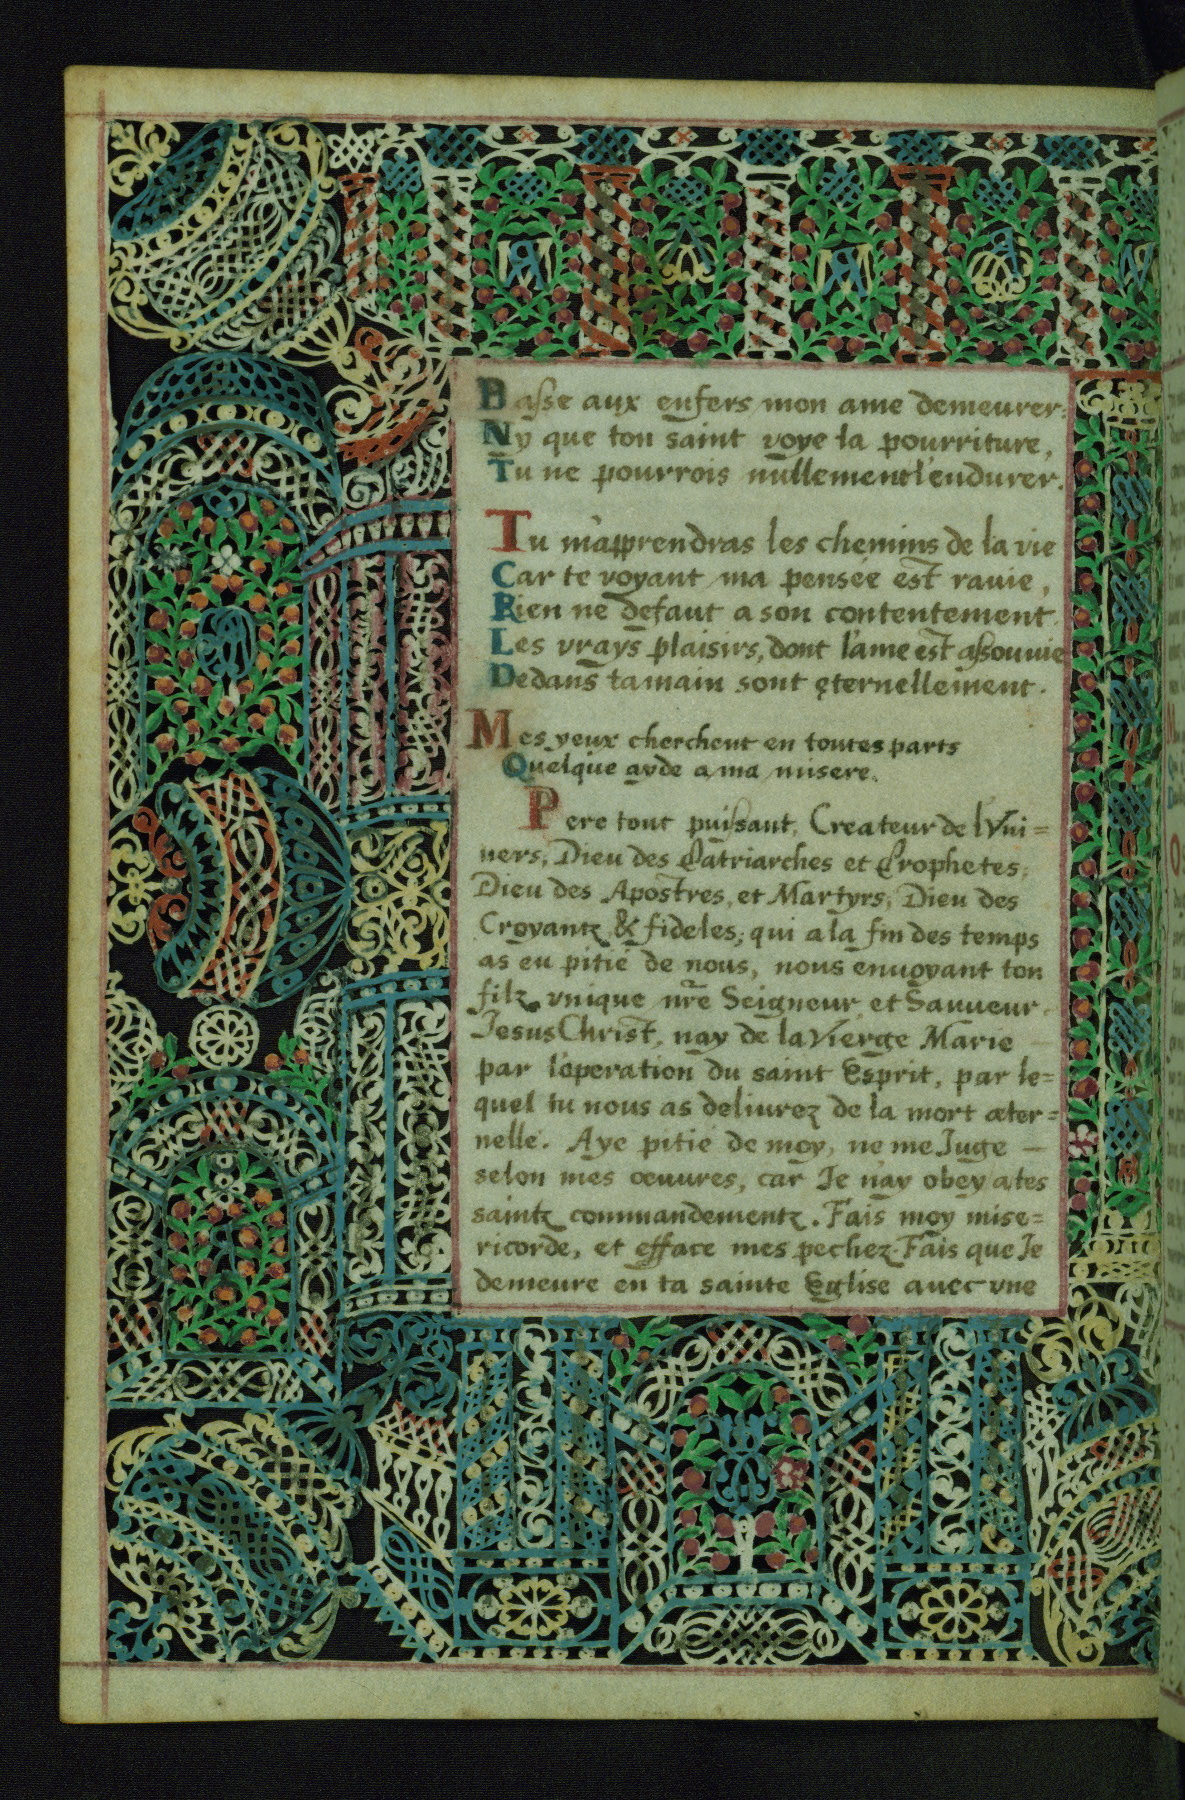 Baſse aux enfers mon ame demeurer:
Ny que ton saint voye la pourriture,
Tu ne pourrois nullement l'endurer.
Tu m'apprendras les chemins de la vie
Car te voyant ma pensée est rauie,
Rien ne defaut a son contentement.
Les vrays plaisirs, dont l'ame est aſsouuie
Dedans ta main sont ęternellement.
Mes yeux cherchent en toutes parts
Quelque ayde a ma misere.
Pere tout puiſsant, Createur de l'Vni=
uers, Dieu des Patriarches et Prophetes,
Dieu des Apostres, et Martyrs, Dieu des
Croyantz & fideles; qui a la fin des temps
as eu pitié de nous, nous enuoyant ton
filz vnique nr̃e Seigneur et Sauueur
Jesus Christ, nay de la Vierge Marie
par l'operation du saint Esprit, par le=
quel tu nous as deliurez de la mort æter=
nelle. Aye pitié de moy, ne me Juge
selon mes œuures, car Je n'ay obey a tes
saintz commandementz. Fais moy mise=
ricorde, et efface mes pechez. Fais que Je
demeure en ta sainte Eglise auec vne